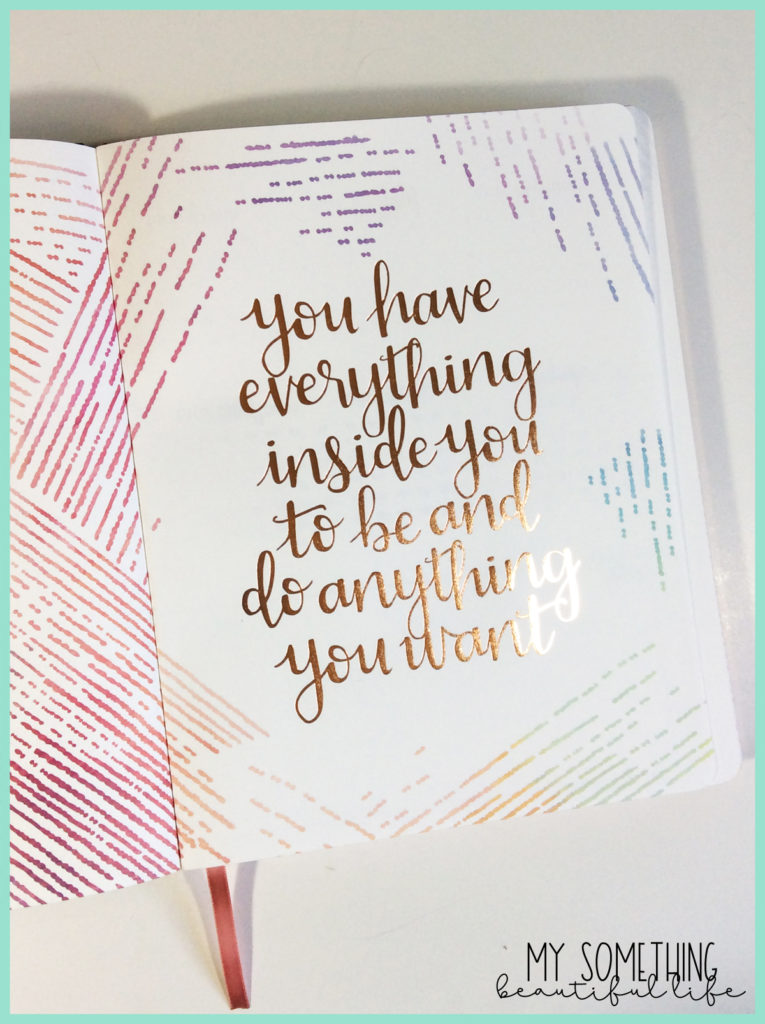 you have
everything
inside you
to be and
do anything
you want
MY SOMETHING
beautiful life